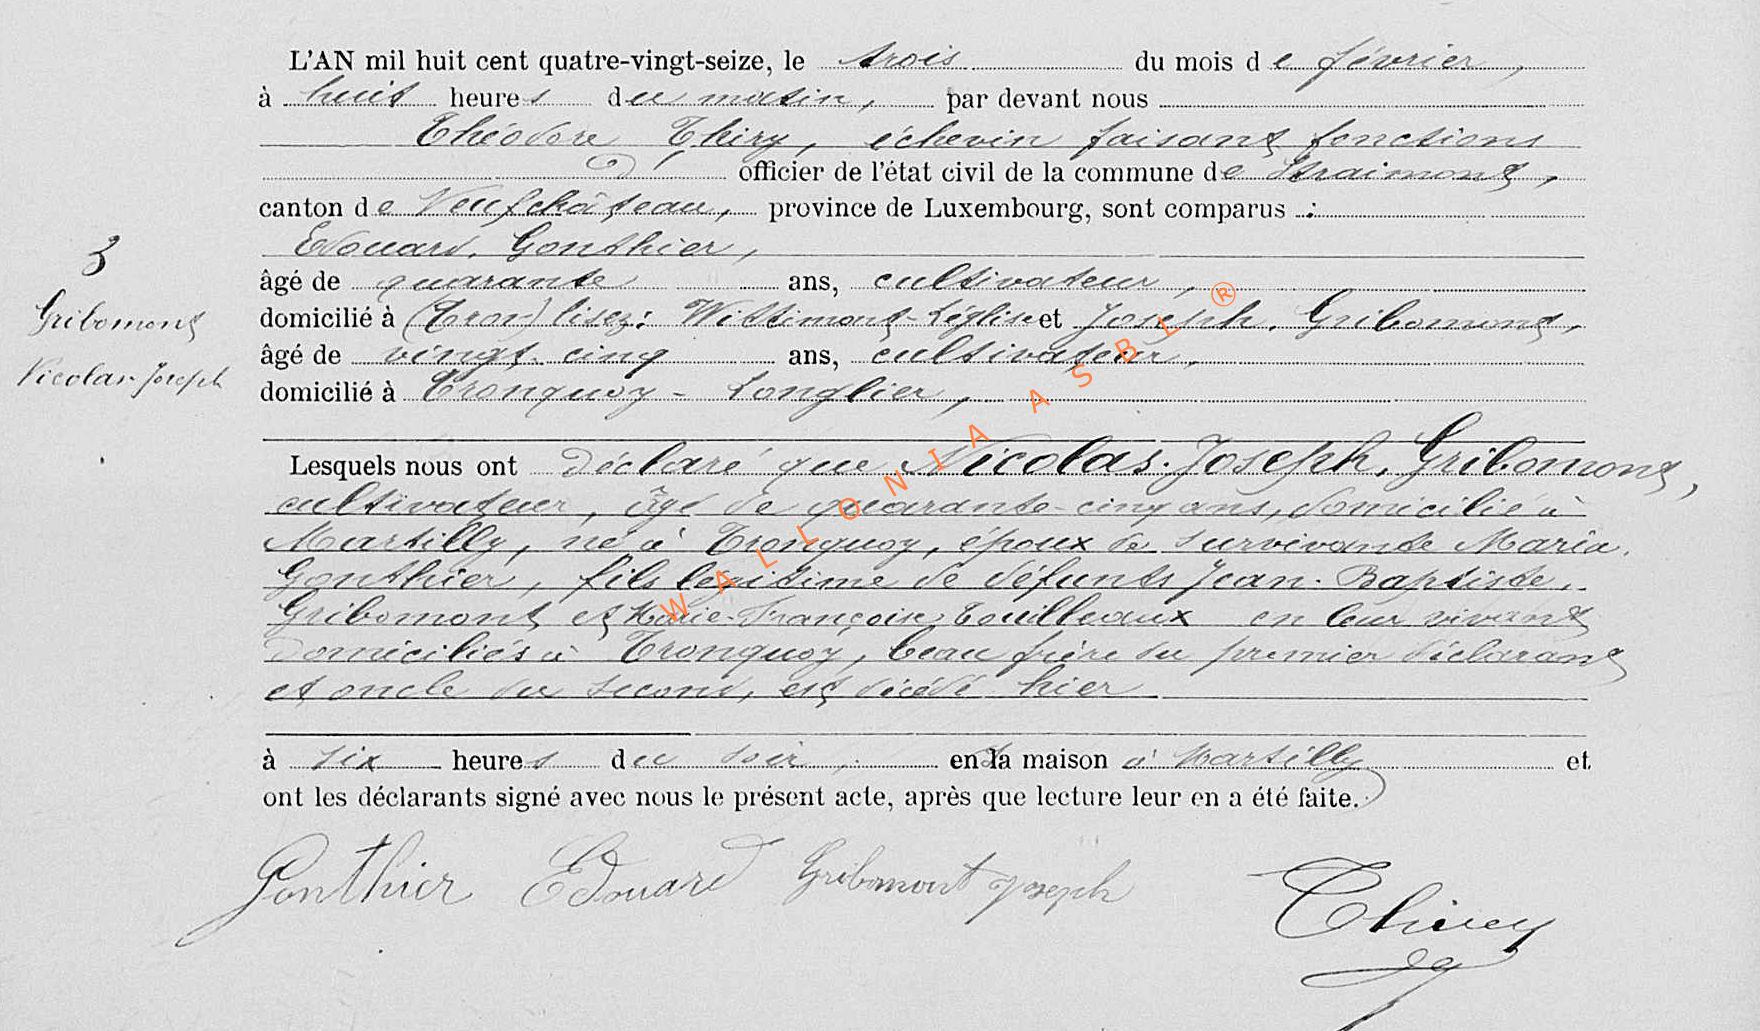 L'AN mil huit cent quatre-vingt-seize, le trois du mois de février,
à huit heures du matin, par devant nous
Théodore Thiry, échevin faisant fonctions
d' officier de l'état civil de la commune de Straimont,
canton de Neufchâteau, province de Luxembourg, sont comparus :
Edouard. Gonthier,
âgé de quarante ans, cultivateur,
domicilié à (Tron-) lisez: Wittimont-Léglise et Joseph. Gribomont,
âgé de vingt-cinq ans, cultivateur,
domicilié à Tronquoy - Longlier,
3
Gribomont
Nicolas-Joseph
Lesquels nous ont déclaré que Nicolas-Joseph, Gribomont,
cultivateur, âgé de quarante-cinq ans, domicilié à
Martilly, né à Tronquoy, époux de survivante Maria.
Gonthier, fils légitime de défunts Jean-Baptiste.
Gribomont et Marie-Françoise Touilleaux en leur vivant
domiciliés à Tronquoy, beau frère du premier déclarant
et oncle du second, est décédé hier
à six heures du soir, en sa maison à Martilly et
ont les déclarants signé avec nous le présent acte, après que lecture leur en a été faite.
Gonthier Edouard Gribomont Joseph Thirey
WALLONIA ASBL ®